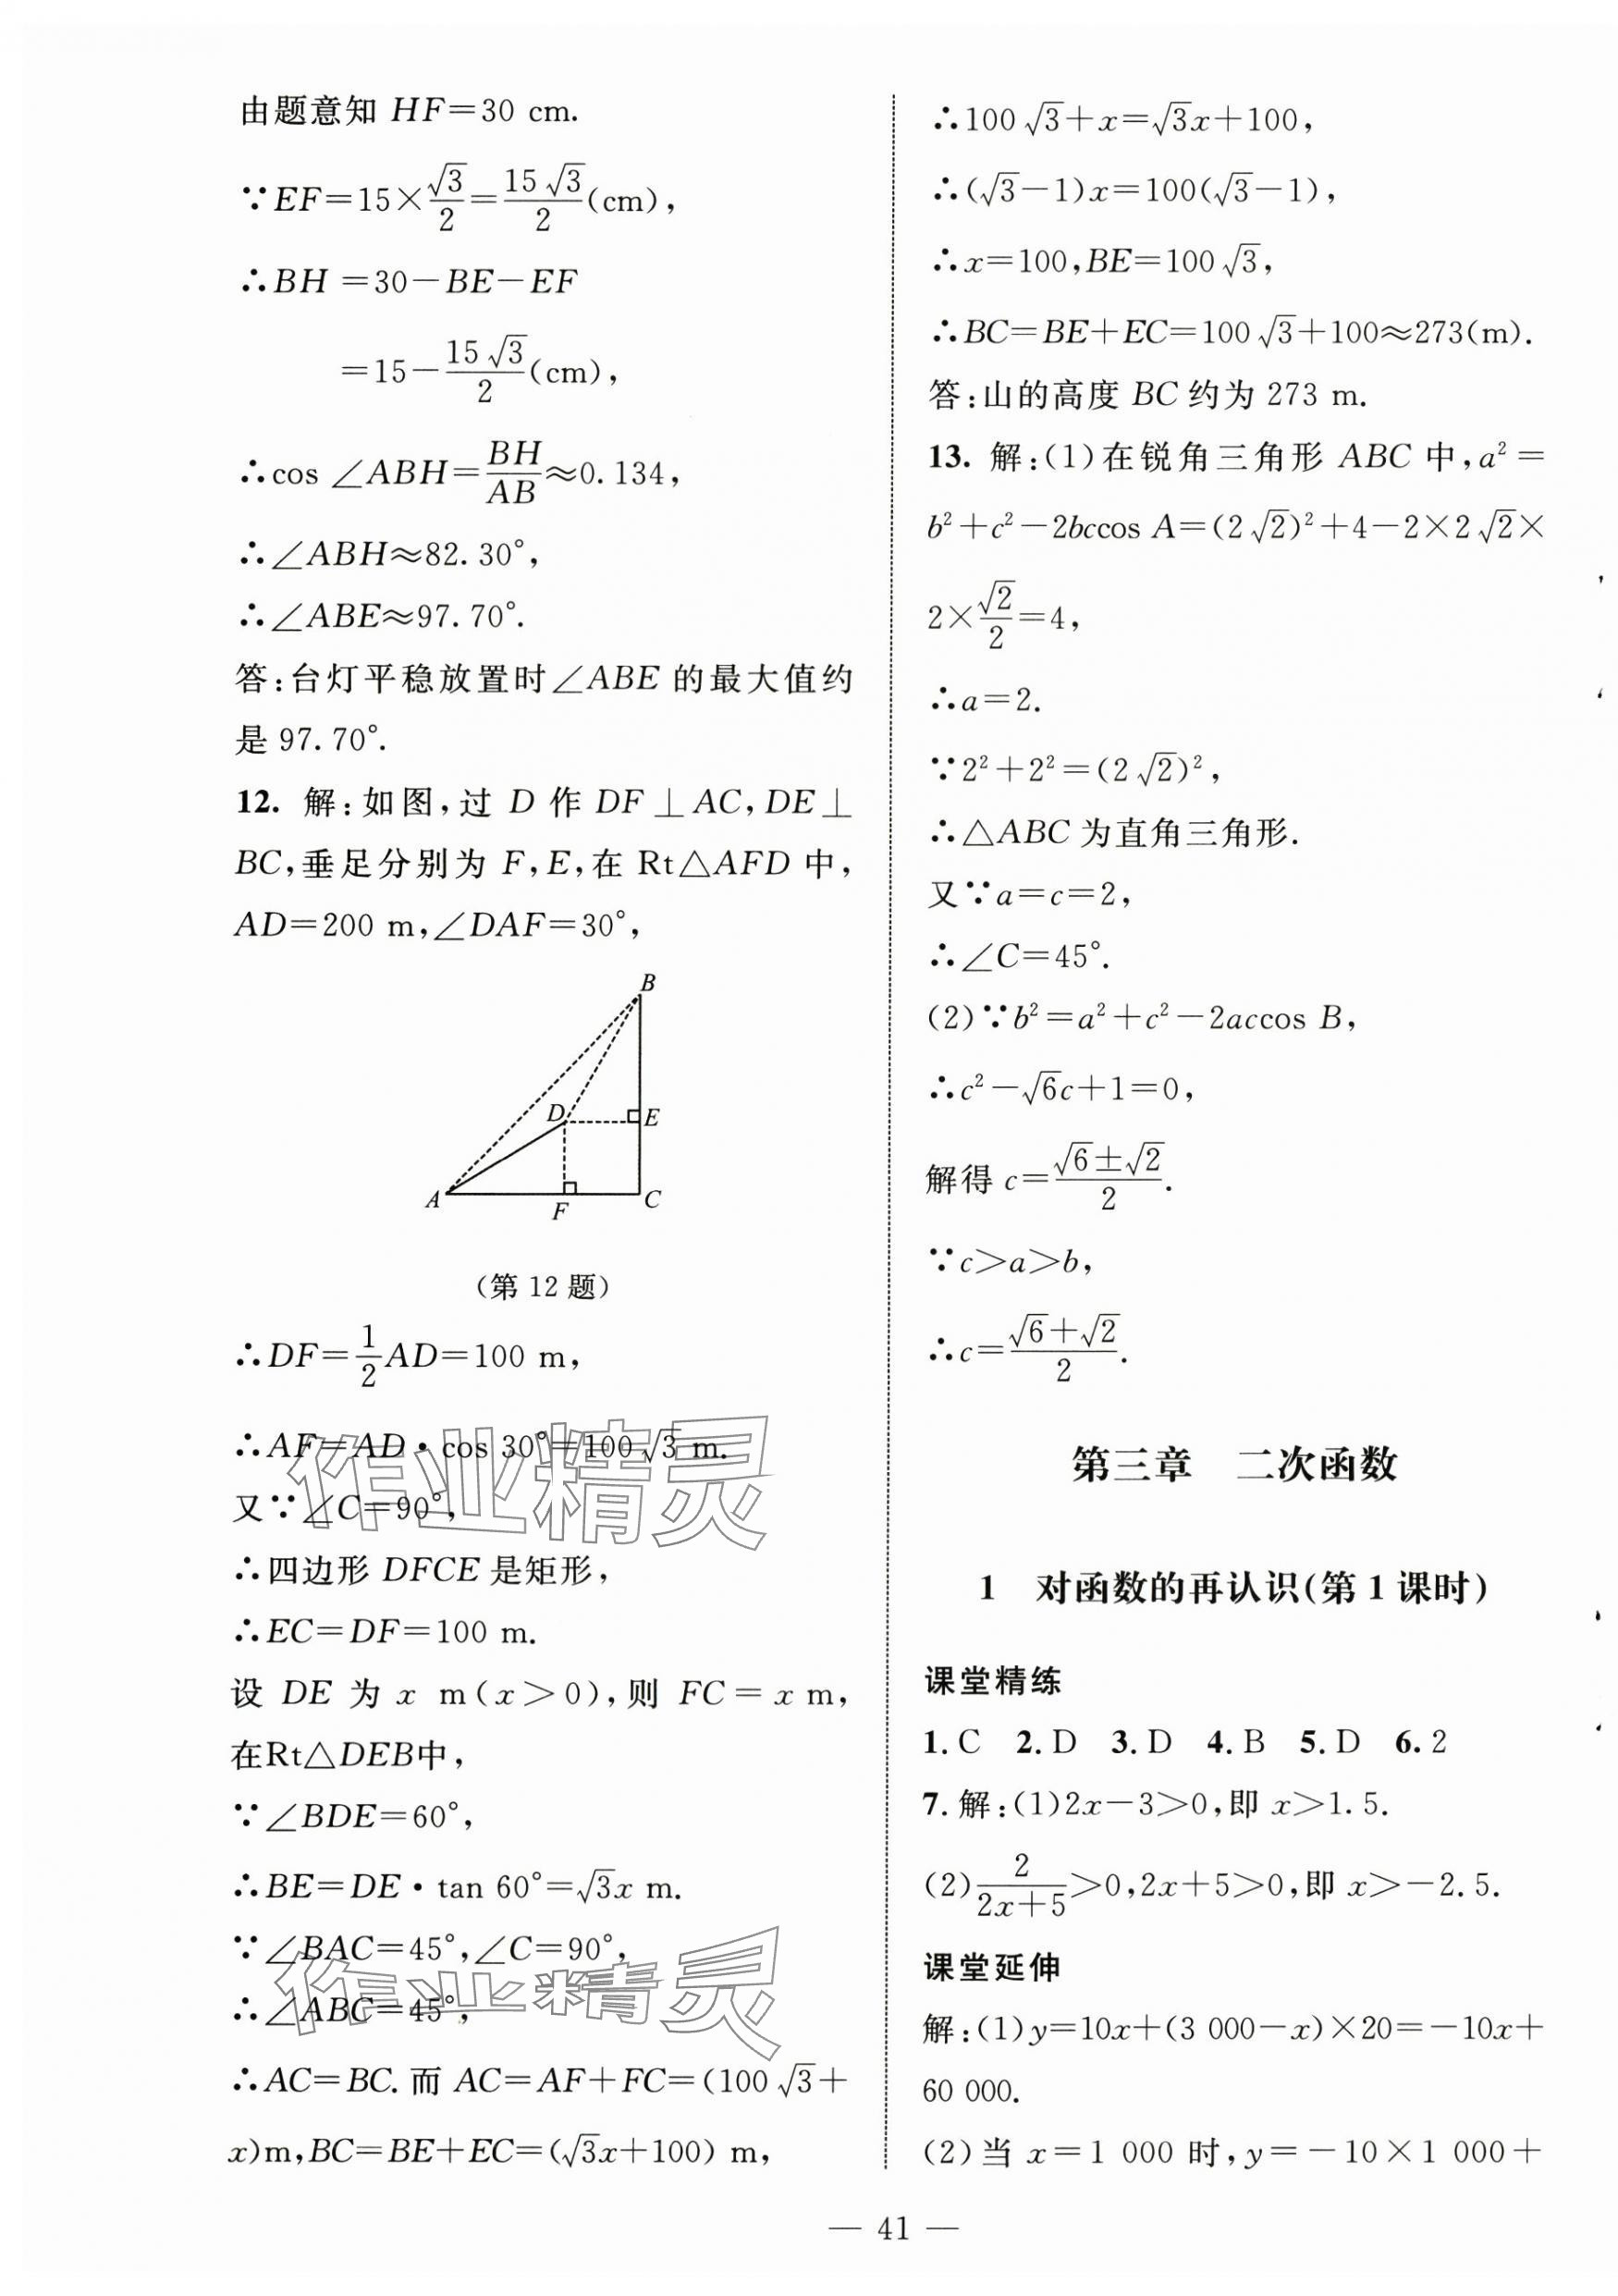 由题意知 HF=30 cm.
∵EF=15×√3/2=15√3/2(cm),
∴BH =30-BE-EF
=15-15√3/2(cm),
∴cos ∠ABH=BH/AB≈0.134,
∴∠ABH≈82.30°,
∴∠ABE≈97.70°.
答:台灯平稳放置时∠ABE 的最大值约
是 97.70°.
12. 解:如图,过 D 作 DF⊥AC,DE⊥
BC,垂足分别为 F,E,在 Rt△AFD 中,
AD=200 m,∠DAF=30°,
B
D
E
A
F
C
(第 12 题)
∴DF=1/2AD=100 m,
∴AF=AD·cos 30°=100√3 m.
又∵∠C=90°,
∴四边形 DFCE 是矩形,
∴EC=DF=100 m.
设 DE 为 x m(x>0),则 FC=x m,
在Rt△DEB中,
∵∠BDE=60°,
∴BE=DE·tan 60°=√3x m.
∵∠BAC=45°,∠C=90°,
∴∠ABC=45°,
∴AC=BC.而 AC=AF+FC=(100√3+
x)m,BC=BE+EC=(√3x+100) m,
∴100√3+x=√3x+100,
∴(√3-1)x=100(√3-1),
∴x=100,BE=100√3,
∴BC=BE+EC=100√3+100≈273(m).
答:山的高度 BC 约为 273 m.
13. 解:(1)在锐角三角形 ABC 中,a²=
b²+c²-2bccos A=(2√2)²+4-2×2√2×
2×√2/2=4,
∴a=2.
∵2²+2²=(2√2)²,
∴△ABC 为直角三角形.
又∵a=c=2,
∴∠C=45°.
(2)∵b²=a²+c²-2accos B,
∴c²-√6c+1=0,
解得 c=(√6±√2)/2.
∵c>a>b,
∴c=(√6+√2)/2.
第三章 二次函数
1 对函数的再认识(第 1 课时)
课堂精练
1. C 2. D 3. D 4. B 5. D 6. 2
7. 解:(1)2x-3>0,即 x>1.5.
(2)2/(2x+5)>0,2x+5>0,即 x>-2.5.
课堂延伸
解:(1)y=10x+(3 000-x)×20=-10x+
60 000.
(2)当 x=1 000 时,y=-10×1 000+
— 41 —
作业精灵
作业精灵